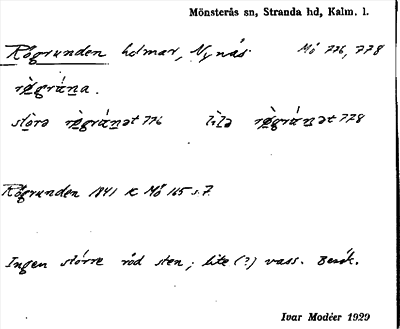 Mönsterås sn, Stranda hd, Kalm. l.
Rögrunden holmar, Nynäs. Mö 776, 778
rø̀grúna.
stòrə rø̀grúnət 776 lìlə rø̀grúnət 778
Rögrunden 1841 K Mö 165 s. 7.
Ingen större röd sten; lite (?) vass. Besök.
Ivar Modéer 1929